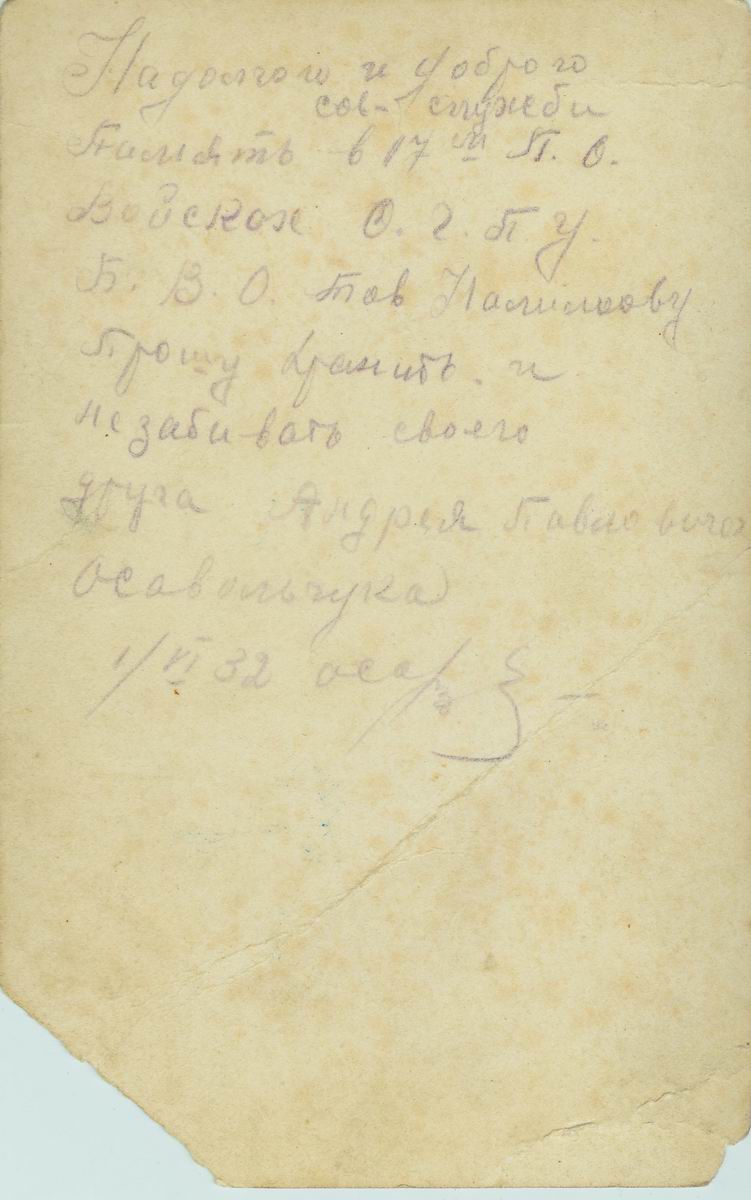 Надолгого и доброго
сов- служби
Память в 17м П. О.
Войсках О. Г. П У.
П. В. О. тов
Прошу хранить. и
незабивать своего
друга Андрея Павловича
Осавольчука
1/VI 32 оса